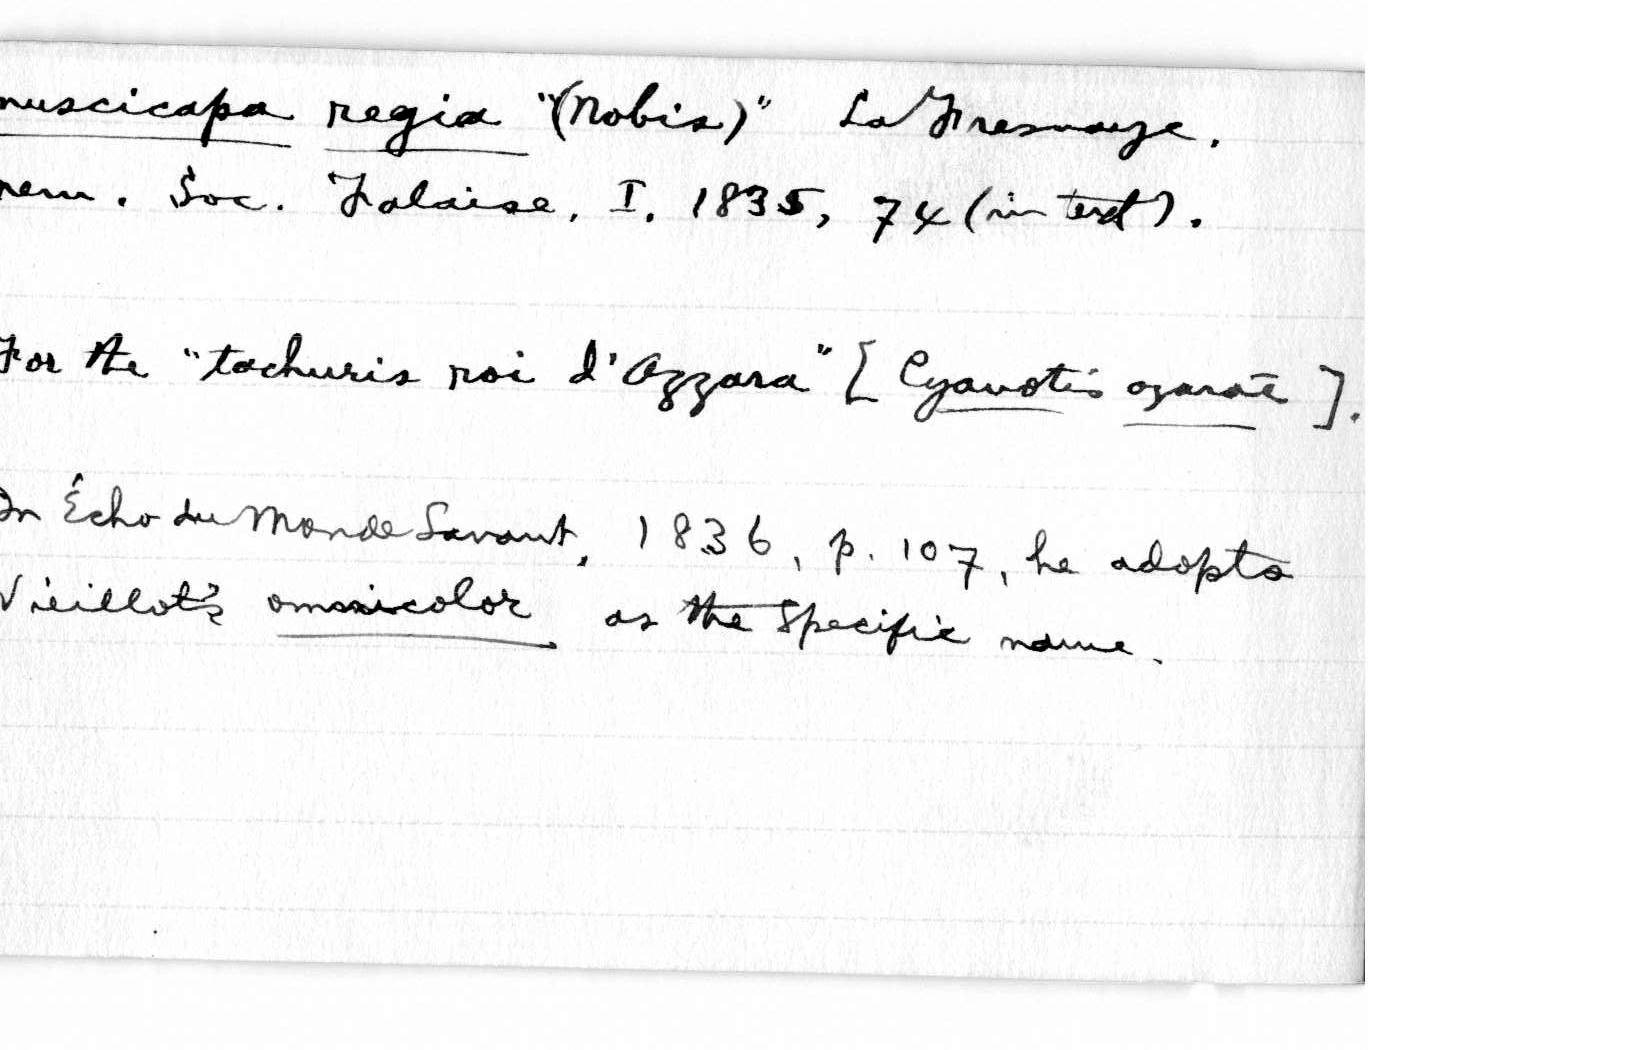 muscicapa regia "(Nobis)" La Fresnaye.
mem. Soc. Falaise, I, 1835, 74 (in text).
For the "tachuris roi d'Azzara" [Cyanotis azarae].
In Écho du Monde Savant, 1836, p. 107, he adopts
Vieillot's omnicolor as the specific name.